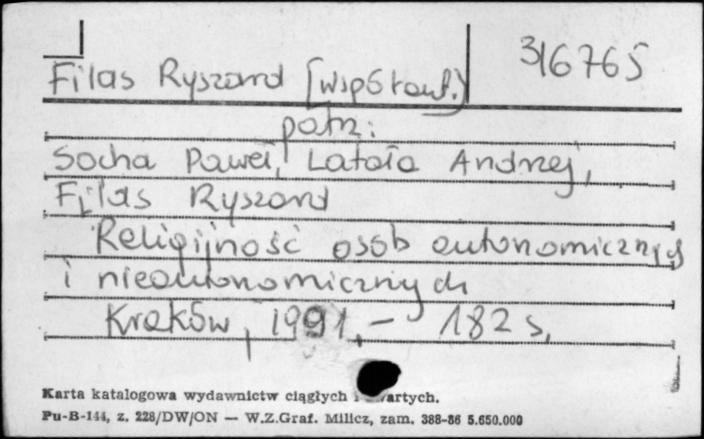 Filas Ryszard [współaut.) 316765
patrz:
Socha Paweł, Latała Andrzej,
Filas Ryszard
Religijność osób autonomicznych
i nieautonomicznych
Kraków, 1991, – 182 s,
Karta katalogowa wydawnictw ciągłych i artych.
Pu-B-144, z. 228/DW/ON — W.Z.Graf. Milicz, zam. 388-86 5.650.000